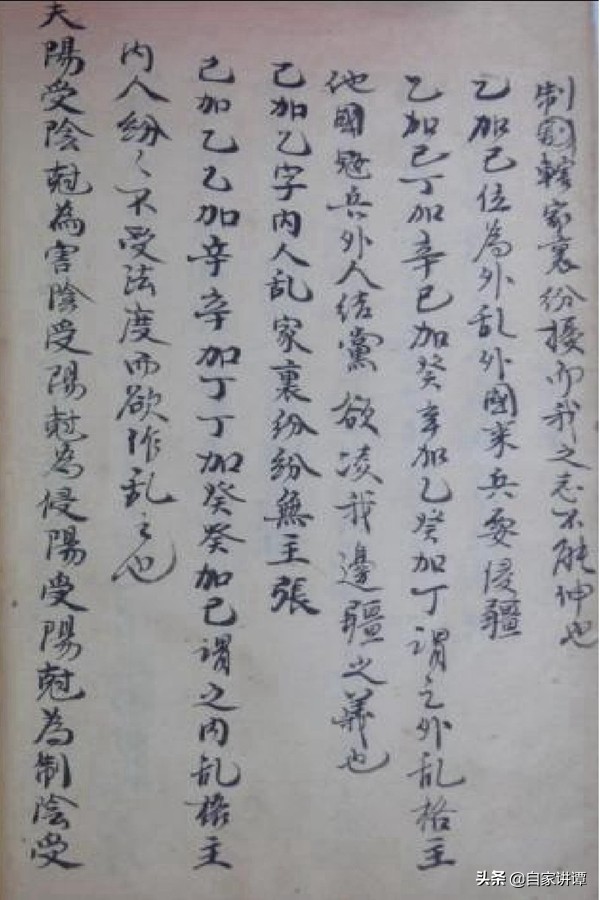 制國轄家裏紛擾而我之志不能伸也
乙加己位為外乱外國來兵要侵疆
乙加己丁加辛己加癸辛加乙癸加丁謂之外乱格主
他國冠兵外人结黨欲凌我邊疆之義也
己加乙字内人乱家裏纷纷無主張
己加乙乙加辛辛加丁丁加癸癸加己謂之内乱格主
内人紛〻不受法度而欲作乱之也
夫陽受陰尅為害陰受陽尅為侵陽受陽尅為制陰受
头条 @自家讲谭